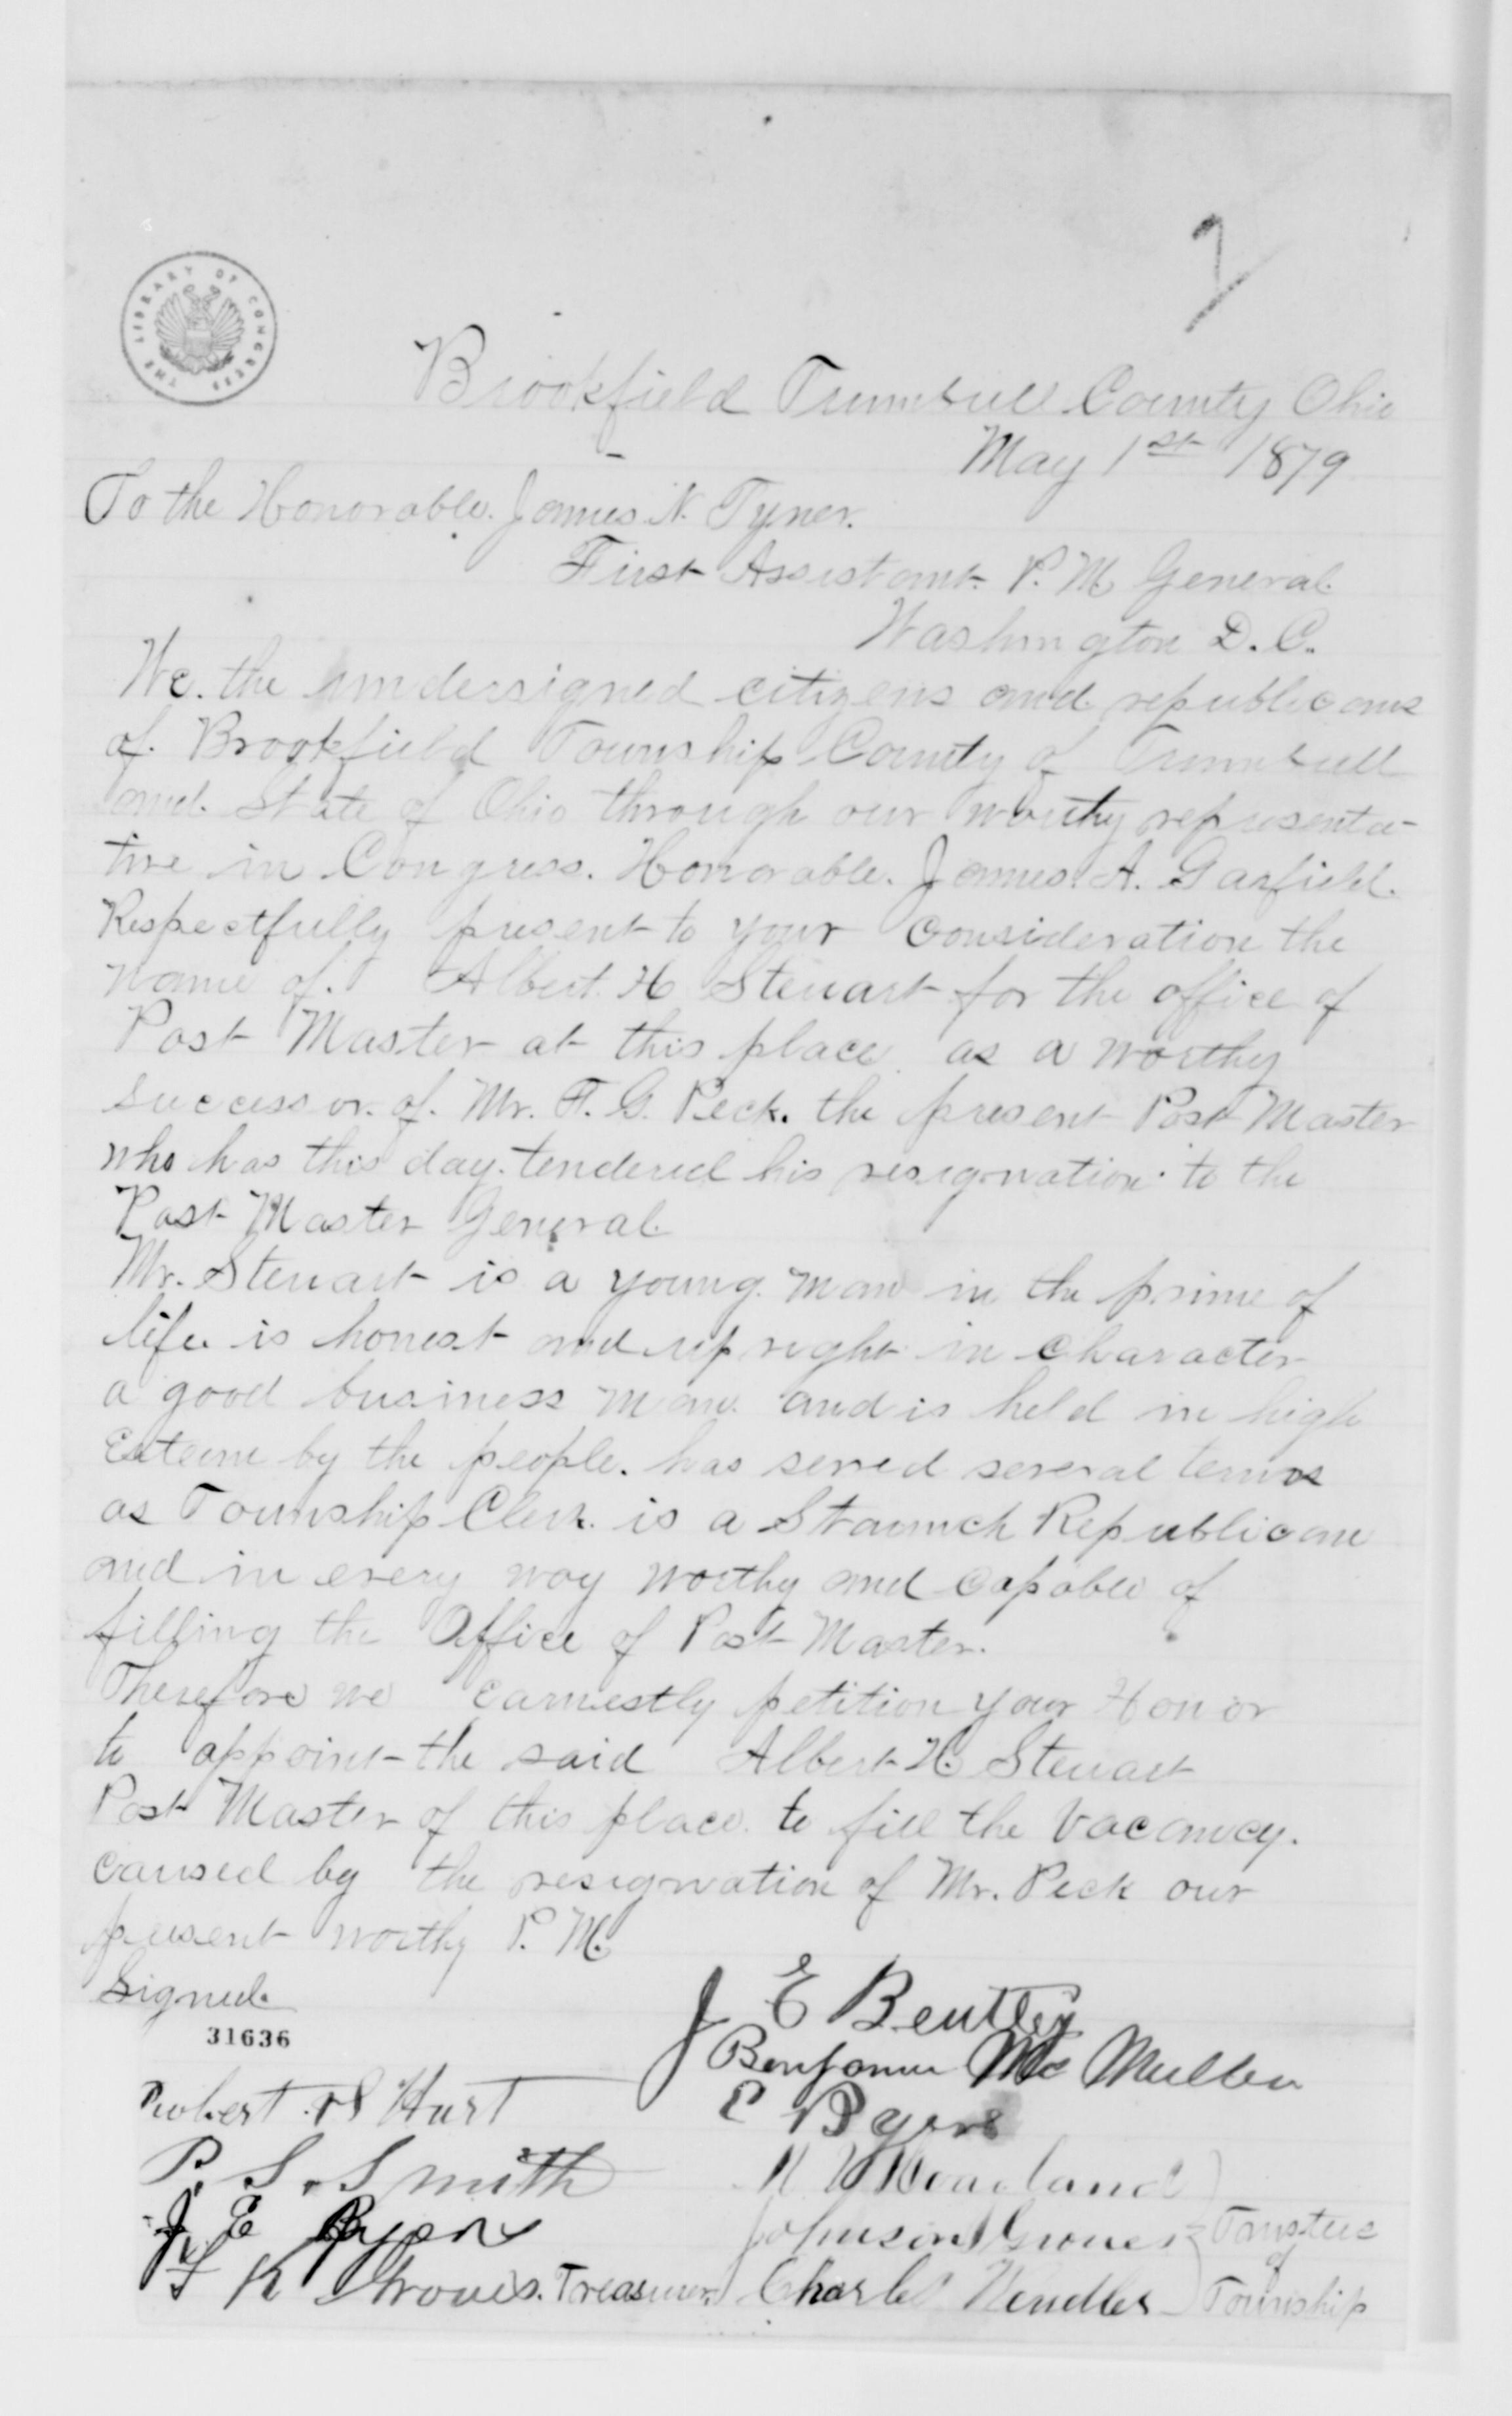 7
THE LIBRARY OF CONGRESS
Brookfield Trumbull County Ohio
May 1st 1879
To the Honorable. James N. Tyner.
First Assistant P. M General
Washington D. C.
We. the undersigned citizens and republicans
of. Brookfield Township County of Trumbull
and State of Ohio through our worthy representa-
tive in Congress. Honorable. James. A. Garfield.
Respectfully present to your Consideration the
name of. Albert. H Steuart for the office of
Post Master at this place as a worthy
successor. of. Mr. F. G. Peck. the present Post Master
who has this day tendered his resignation to the
Post Master General
Mr. Steuart is a young man in the prime of
life is honest and upright in character
a good business man and is held in high
Esteem by the people. has served several terms
as Township Clerk. is a Staunch Republican
and in every way worthy and capable of
filling the Office of Post Master.
Therefore we earnestly petition your Honor
to appoint the said Albert H. Steuart
Post Master of this place to fill the Vacancy.
caused by the resignation of Mr. Peck our
present worthy P. M.
Signed
31636
J E Bentley
Benjamin Mc Mullen
E Byers
Robert Hart
P. S. Smith
J E Byers
K Groves. Treasurer
Johnson Groves
Charles
Trustees
of
Township